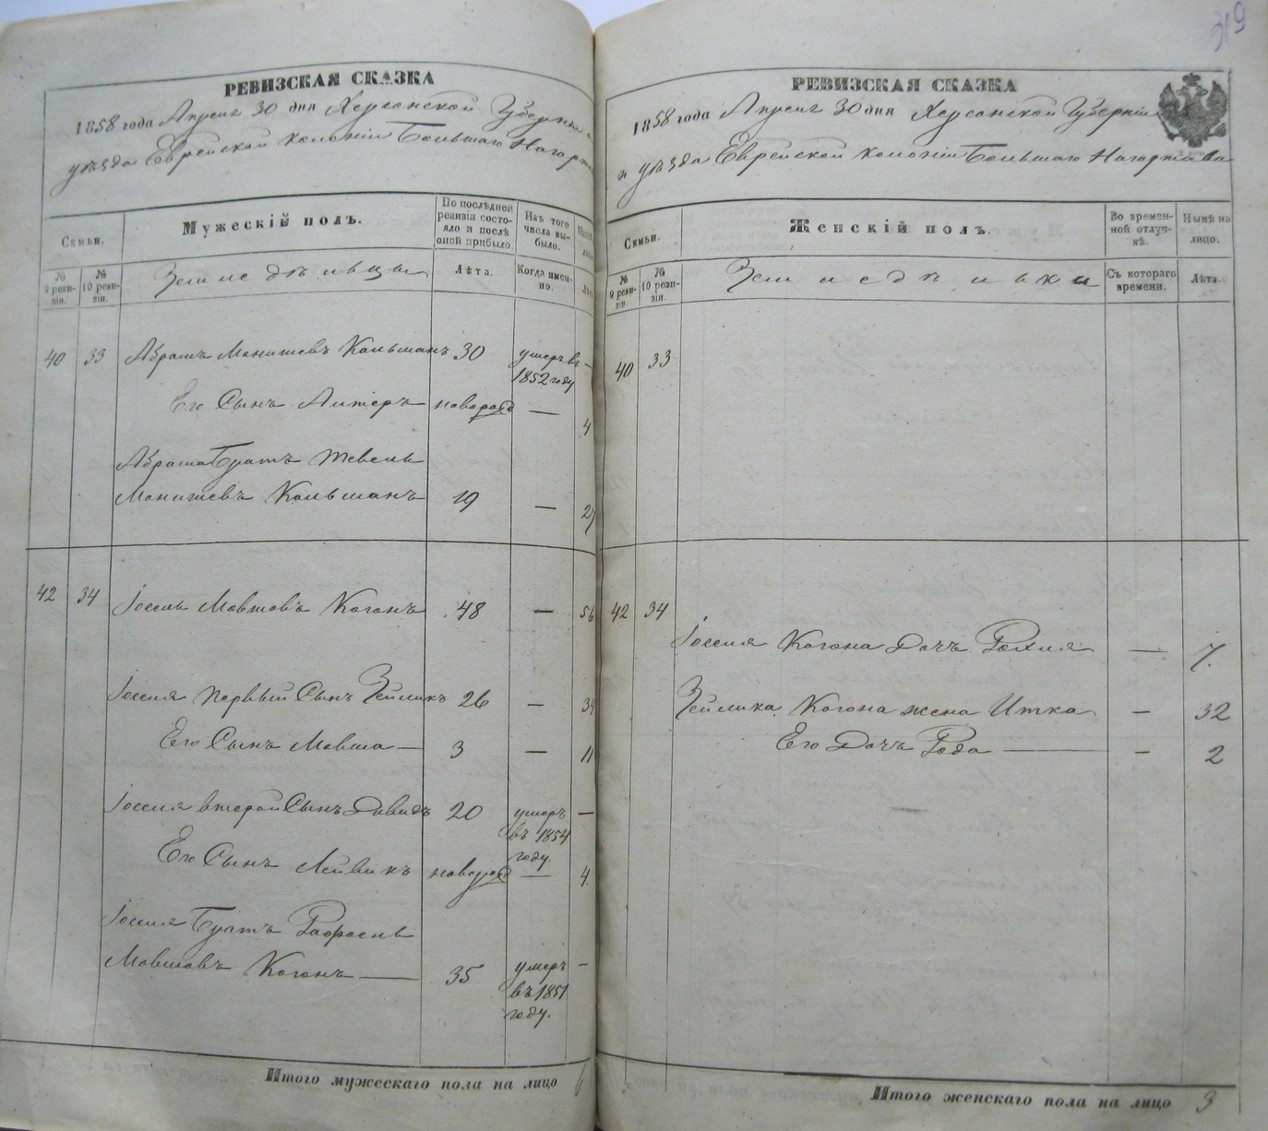 РЕВИЗСКАЯ СКАЗКА
1858 года Апреля 30 дня Херсонской Губерніи и
уѣзда Еврейской колоніи Большаго Нагарт
Семьи.
Мужескій полъ.
По послѣдней ревизіи состояло и послѣ оной прибыло.
Изъ того числа выбыло.
№ 9 ревизіи.
№ 10 ревизіи.
Земледѣльцы
Лѣта.
Когда именно.
40 33 Абрамъ Монишевъ Кальманъ 30 умеръ въ 1852 году —
Его Сынъ Алтеръ новорожд — 4
Абрама Братъ Тевель
Монишевъ Кальманъ 19 — 27
42 34 Іосель Мовшовъ Когонъ 48 — 56
Іоселя Первый Сынъ Зейликъ 26 — 34
Его Сынъ Мовша — 3 — 11
Іоселя второй Сынъ Давидъ 20 умеръ въ 1854 году. —
Его Сынъ Лейвикъ новорожд — 4.
Іоселя Братъ Рафоель
Мовшовъ Когонъ — 35 умеръ въ 1851 году. —
Итого мужескаго пола на лицо 6
319
РЕВИЗСКАЯ СКАЗКА
1858 года Апреля 30 дня Херсонской Губерніи
и уѣзда Еврейской колоніи Большаго Нагартава
Семьи.
Женскій полъ.
Во временной отлучкѣ.
Нынѣ на лицо.
№ 9 ревизіи.
№ 10 ревизіи.
Земледѣльки
Съ котораго времени.
Лѣта.
40 33
42 34
Іоселя Когона Дочь Рохля — 7.
Зейлика Когона жена Итка — 32
Его Дочь Рода — — 2
Итого женскаго пола на лицо 3